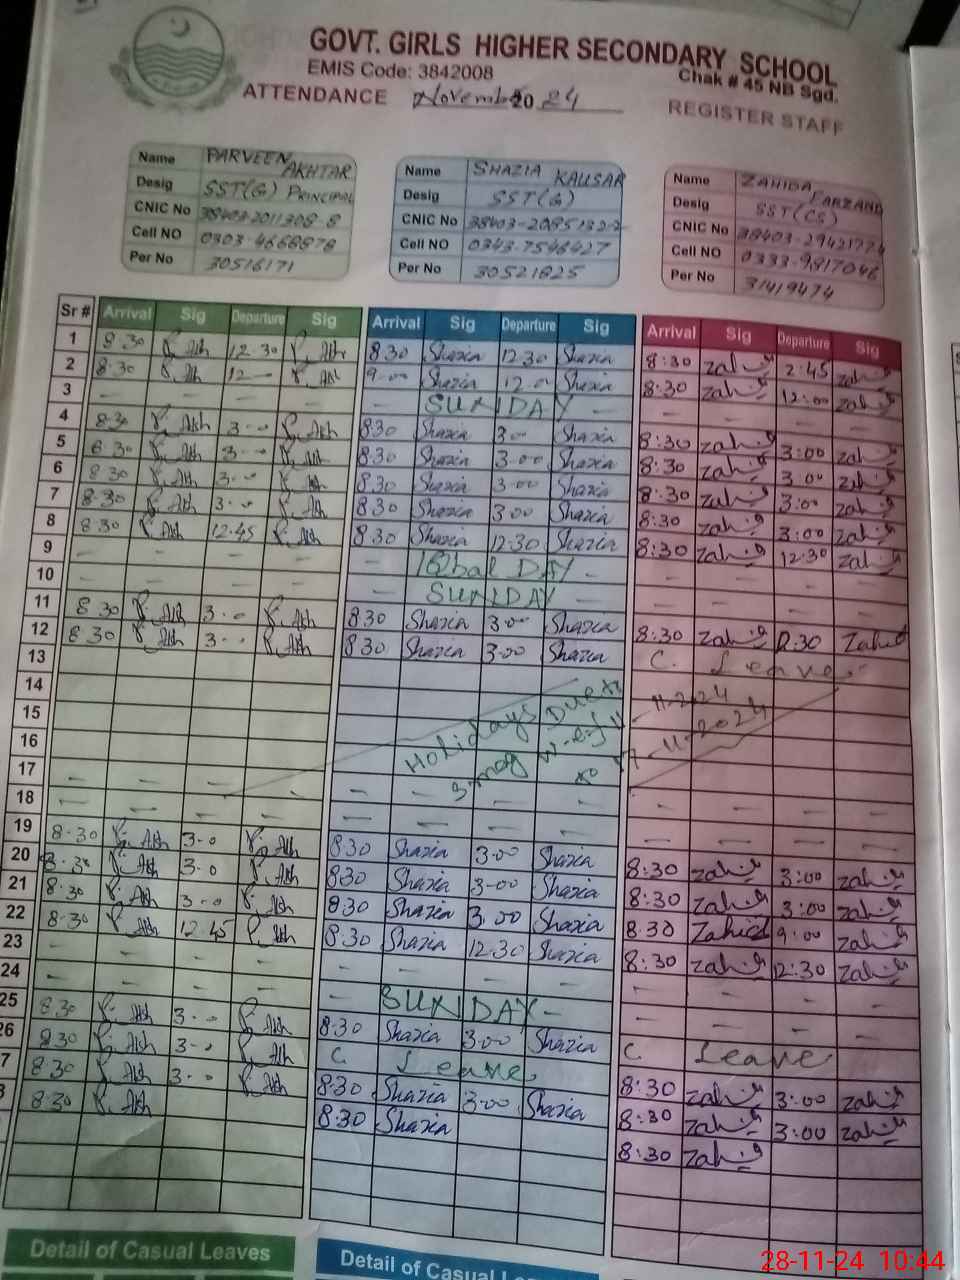 GOVT. GIRLS HIGHER SECONDARY SCHOOL
EMIS Code: 3842008
Chak # 45 NB Sgd.
ATTENDANCE November 2024
REGISTER STAFF
Name PARVEEN AKHTAR
Desig SST(G) PRINCIPAL
CNIC No 38403-2011308-8
Cell NO 0303-4668878
Per No 30516171
Name SHAZIA KAUSAR
Desig SST(G)
CNIC No
Cell NO 0343-7546427
Per No 30521825
Name ZAHIDA FARZAND
Desig SST(CS)
CNIC No
Cell NO 0333-9817046
Per No 31419474
Sr # Arrival Sig Departure Sig Arrival Sig Departure Sig Arrival Sig Departure Sig
1 8.30 P. Akh 12.30 P. Akh 8.30 Shazia 12.30 Shazia 8:30 2:45
2 8.30 P. Akh 12 - P. Akh 9.00 Shazia 12.0 Shazia 8:30 12:00
3 - - - - - SUNDAY - - - - -
4 8.30 P. Akh 3.- P. Akh 8.30 Shazia 3.00 Shazia 8:30 3:00
5 8.30 P. Akh 3.- P. Akh 8.30 Shazia 3.00 Shazia 8:30 3:00
6 8.30 P. Akh 3.- P. Akh 8.30 Shazia 3.00 Shazia 8:30 3:00
7 8.30 P. Akh 3.- P. Akh 8.30 Shazia 3.00 Shazia 8:30 3:00
8 8.30 P. Akh 12.45 P. Akh 8.30 Shazia 12.30 Shazia 8:30 12:30
9 - - - - - Iqbal DAY - - - - -
10 - - - - - SUNDAY - - - -
11 8.30 P. Akh 3.- P. Akh 8.30 Shazia 3.00 Shazia 8:30
12 8.30 P. Akh 3.- P. Akh 8.30 Shazia 3.00 Shazia C. Leave
13
14
15 Holidays Due to
16 Smog w.e.f
17 - - - - to 17-11-2024
18 - - - - - - - - - - - -
19 8.30 P. Akh 3.0 P. Akh 8.30 Shazia 3.00 Shazia 8:30 3:00
20 8.30 P. Akh 3.0 P. Akh 8.30 Shazia 3.00 Shazia 8:30 3:00
21 8.30 P. Akh 3.0 P. Akh 8.30 Shazia 3.00 Shazia 8:30 9:00
22 8.30 P. Akh 12.45 P. Akh 8.30 Shazia 12.30 Shazia 8:30 12:30
23 - - - - - - - - - - - -
24 - - - - - SUNDAY - - - - -
25 8.30 P. Akh 3.- P. Akh 8.30 Shazia 3.00 Shazia C. Leave
26 8.30 P. Akh 3.- P. Akh C. Leave 8:30 3:00
7 8.30 P. Akh 3.- P. Akh 8.30 Shazia 3.00 Shazia 8:30 3:00
8.30 P. Akh 8.30 Shazia 8:30
Detail of Casual Leaves
Detail of Casual
28-11-24 10:44